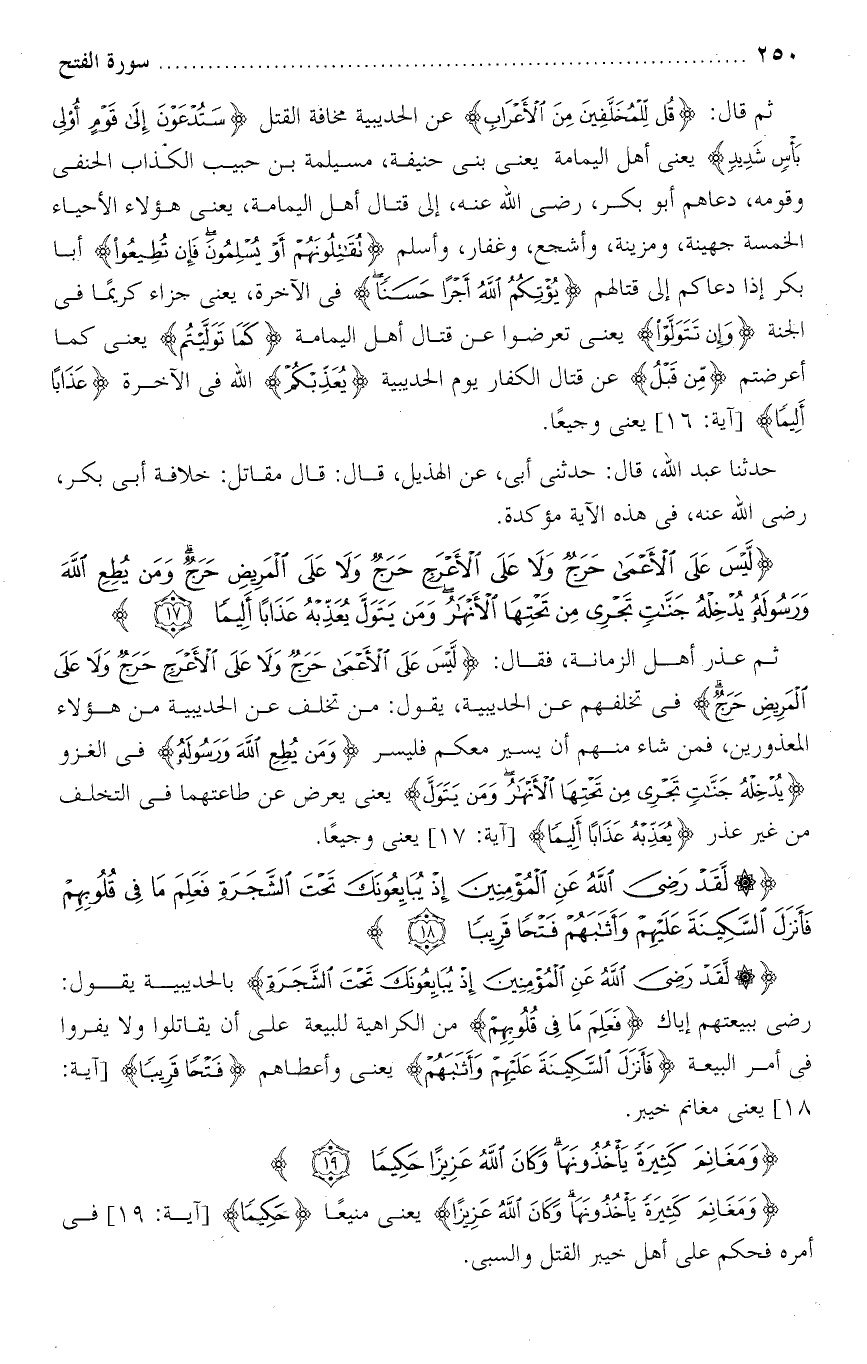 ٢٥٠ ........................................................................ سورة الفتح
ثم قال: ﴿قُل لِّلْمُخَلَّفِينَ مِنَ ٱلْأَعْرَابِ﴾ عن الحديبية مخافة القتل ﴿سَتُدْعَوْنَ إِلَىٰ قَوْمٍ أُوْلِى
بَأْسٍ شَدِيدٍ﴾ يعنى أهل اليمامة يعنى بنى حنيفة، مسيلمة بن حبيب الكذاب الحنفى
وقومه، دعاهم أبو بكر، رضى الله عنه، إلى قتال أهل اليمامة، يعنى هؤلاء الأحياء
الخمسة جهينة، ومزينة، وأشجع، وغفار، وأسلم ﴿تُقَٰتِلُونَهُمْ أَوْ يُسْلِمُونَۖ فَإِن تُطِيعُواْ﴾ أبا
بكر إذا دعاكم إلى قتالهم ﴿يُؤْتِكُمُ ٱللَّهُ أَجْرًا حَسَنًاۖ﴾ فى الآخرة، يعنى جزاء كريمًا فى
الجنة ﴿وَإِن تَتَوَلَّوْاْ﴾ يعنى تعرضوا عن قتال أهل اليمامة ﴿كَمَا تَوَلَّيْتُم﴾ يعنى كما
أعرضتم ﴿مِّن قَبْلُ﴾ عن قتال الكفار يوم الحديبية ﴿يُعَذِّبْكُمْ﴾ الله فى الآخرة ﴿عَذَابًا
أَلِيمًا﴾ [آية: ١٦] يعنى وجيعًا.
حدثنا عبد الله، قال: حدثنى أبى، عن الهذيل، قال: قال مقاتل: خلافة أبى بكر،
رضى الله عنه، فى هذه الآية مؤكدة.
﴿لَّيْسَ عَلَى ٱلْأَعْمَىٰ حَرَجٌ وَلَا عَلَى ٱلْأَعْرَجِ حَرَجٌ وَلَا عَلَى ٱلْمَرِيضِ حَرَجٌۗ وَمَن يُطِعِ ٱللَّهَ
وَرَسُولَهُۥ يُدْخِلْهُ جَنَّٰتٍ تَجْرِى مِن تَحْتِهَا ٱلْأَنْهَٰرُۖ وَمَن يَتَوَلَّ يُعَذِّبْهُ عَذَابًا أَلِيمًا ١٧﴾
ثم عذر أهل الزمانة، فقال: ﴿لَّيْسَ عَلَى ٱلْأَعْمَىٰ حَرَجٌ وَلَا عَلَى ٱلْأَعْرَجِ حَرَجٌ وَلَا عَلَى
ٱلْمَرِيضِ حَرَجٌۗ﴾ فى تخلفهم عن الحديبية، يقول: من تخلف عن الحديبية من هؤلاء
المعذورين، فمن شاء منهم أن يسير معكم فليسر ﴿وَمَن يُطِعِ ٱللَّهَ وَرَسُولَهُۥ﴾ فى الغزو
﴿يُدْخِلْهُ جَنَّٰتٍ تَجْرِى مِن تَحْتِهَا ٱلْأَنْهَٰرُۖ وَمَن يَتَوَلَّ﴾ يعنى يعرض عن طاعتهما فى التخلف
من غير عذر ﴿يُعَذِّبْهُ عَذَابًا أَلِيمًا﴾ [آية: ١٧] يعنى وجيعًا.
﴿۞ لَّقَدْ رَضِىَ ٱللَّهُ عَنِ ٱلْمُؤْمِنِينَ إِذْ يُبَايِعُونَكَ تَحْتَ ٱلشَّجَرَةِ فَعَلِمَ مَا فِى قُلُوبِهِمْ
فَأَنزَلَ ٱلسَّكِينَةَ عَلَيْهِمْ وَأَثَٰبَهُمْ فَتْحًا قَرِيبًا ١٨﴾
﴿۞ لَّقَدْ رَضِىَ ٱللَّهُ عَنِ ٱلْمُؤْمِنِينَ إِذْ يُبَايِعُونَكَ تَحْتَ ٱلشَّجَرَةِ﴾ بالحديبية يقول:
رضى ببيعتهم إياك ﴿فَعَلِمَ مَا فِى قُلُوبِهِمْ﴾ من الكراهية للبيعة على أن يقاتلوا ولا يفروا
فى أمر البيعة ﴿فَأَنزَلَ ٱلسَّكِينَةَ عَلَيْهِمْ وَأَثَٰبَهُمْ﴾ يعنى وأعطاهم ﴿فَتْحًا قَرِيبًا﴾ [آية:
١٨] يعنى مغانم خيبر.
﴿وَمَغَانِمَ كَثِيرَةً يَأْخُذُونَهَاۗ وَكَانَ ٱللَّهُ عَزِيزًا حَكِيمًا ١٩﴾
﴿وَمَغَانِمَ كَثِيرَةً يَأْخُذُونَهَاۗ وَكَانَ ٱللَّهُ عَزِيزًا﴾ يعنى منيعًا ﴿حَكِيمًا﴾ [آية: ١٩] فى
أمره فحكم على أهل خيبر القتل والسبى.